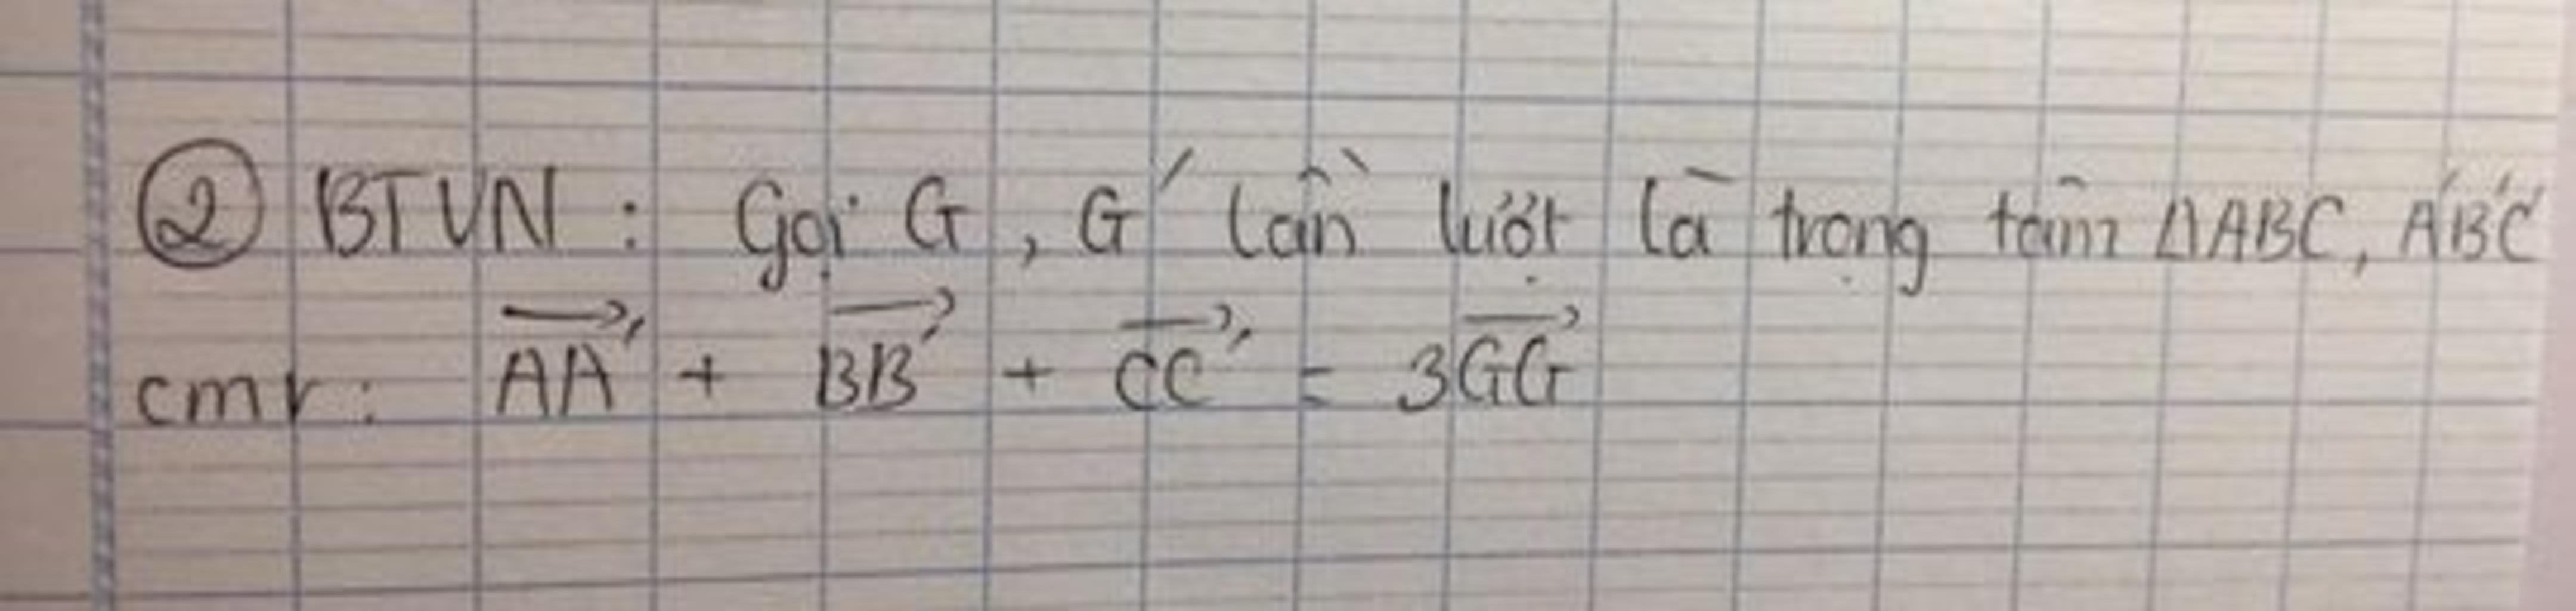 ② BTVN : Gọi G, G' lần lượt là trọng tâm ΔABC, A'B'C'
cmr: AA' + BB' + CC' = 3GG'